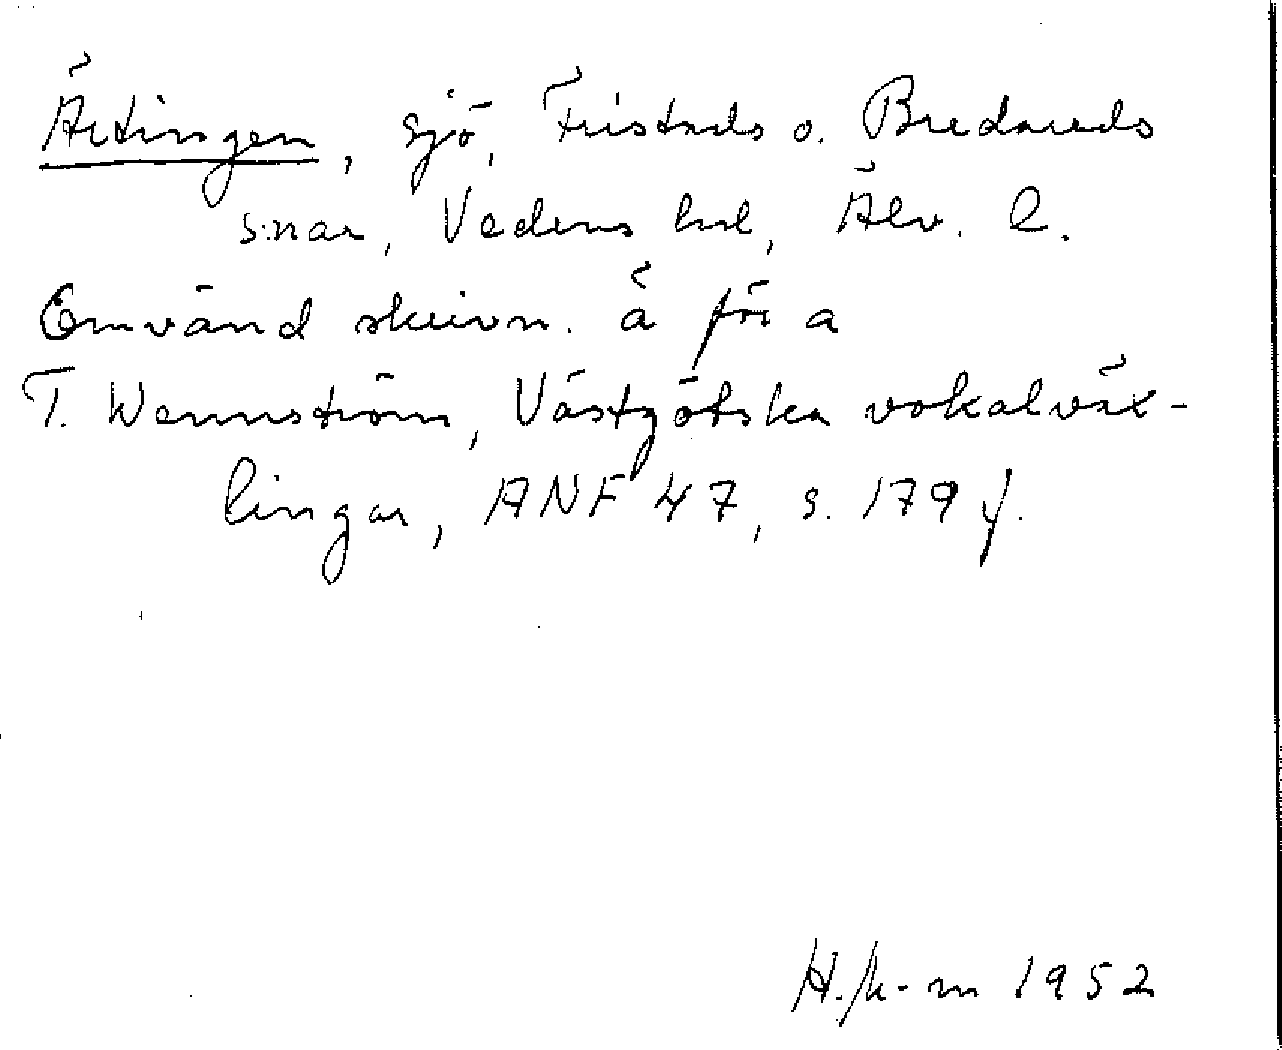 Ärtingen, sjö, Fristads o. Bredareds
s:nar, Vedens hd, Älv. l.
Omvänd skrivn. ä för a
T. Wennström, Västgötska vokalväx-
lingar, ANF 47, s. 179 f.
1952